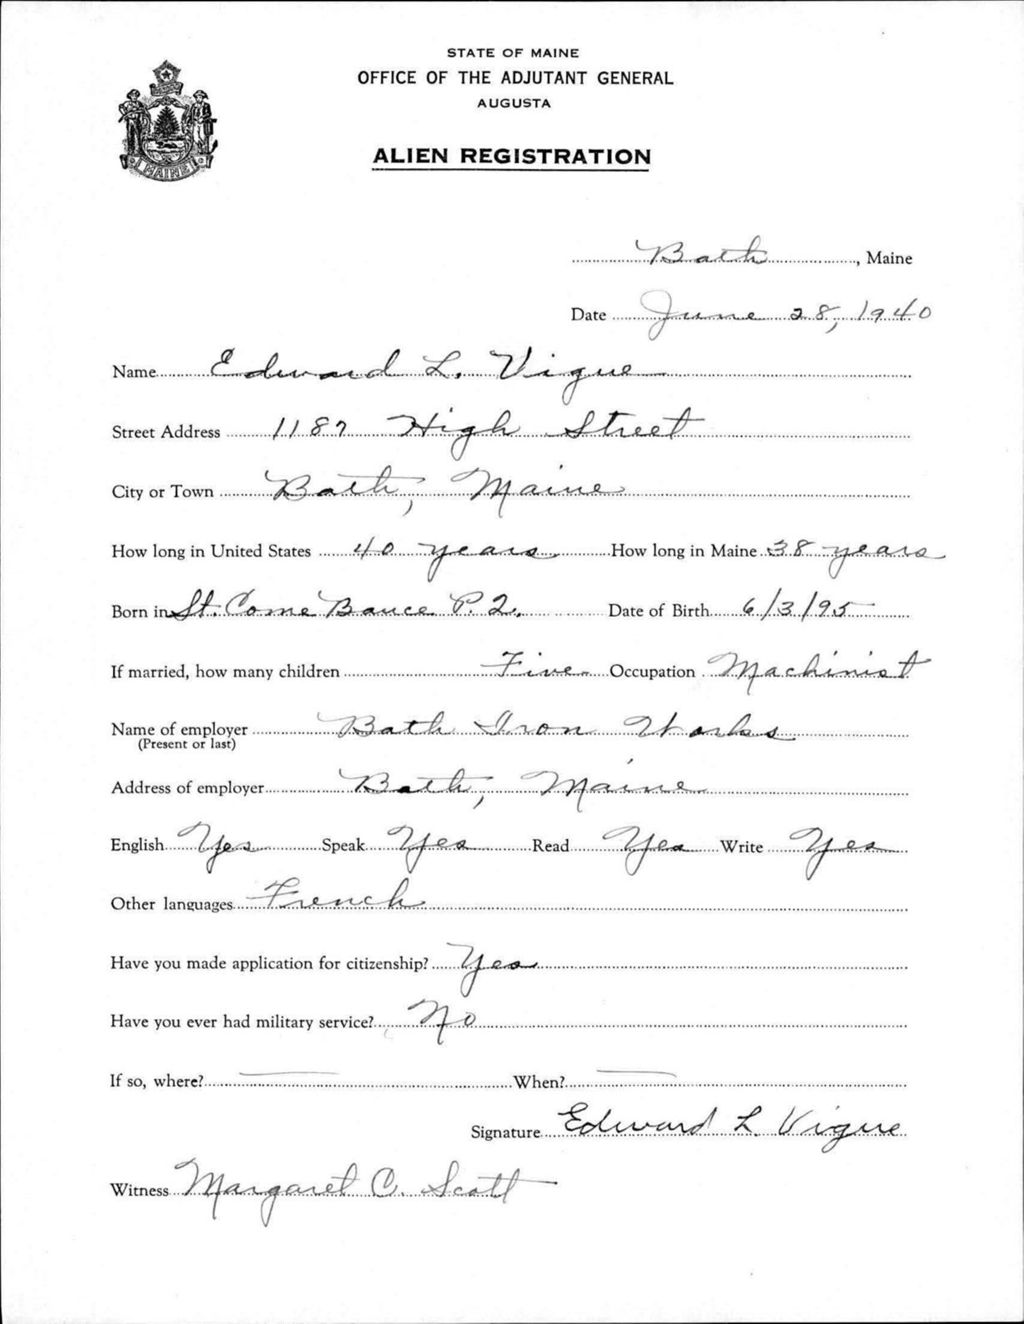 STATE OF MAINE
OFFICE OF THE ADJUTANT GENERAL
AUGUSTA
ALIEN REGISTRATION
MAINE
Bath, Maine
Date June 28, 1940
Name Edward L. Vigue
Street Address 1187 High Street
City or Town Bath, Maine
How long in United States 40 years How long in Maine 38 years
Born in St. Come Bauce P. Q. Date of Birth 6/3/95
If married, how many children Five Occupation Machinist
Name of employer Bath Iron Works
(Present or last)
Address of employer Bath, Maine
English Yes Speak Yes Read Yes Write Yes
Other languages French
Have you made application for citizenship? Yes
Have you ever had military service? No
If so, where? — When? —
Signature Edward L Vigue
Witness Margaret C. Scott